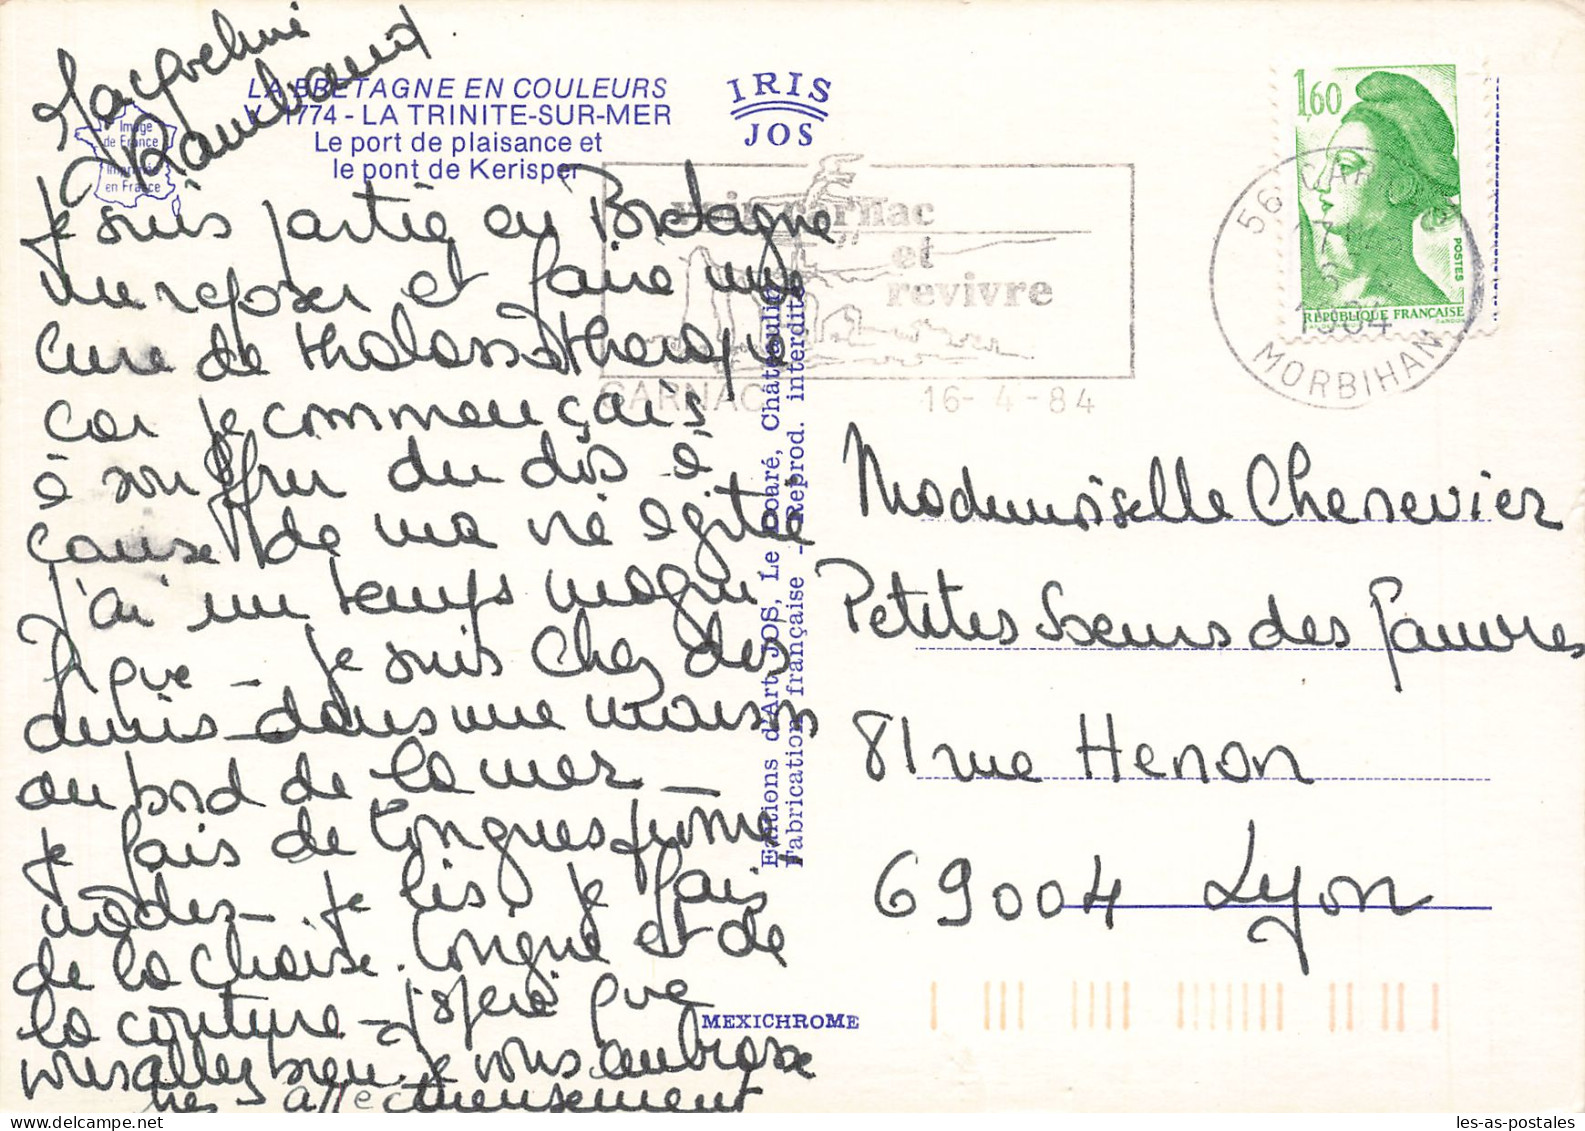 Jacqueline
Rambaud
LA BRETAGNE EN COULEURS
1774 - LA TRINITE-SUR-MER
Le port de plaisance et
le pont de Kerisper
Image
de France
Imprimée
en France
IRIS
JOS
je suis partie en Bretagne
me reposer et faire une
cure de thalassothérapie
car je commençais
à souffrir du dos à
cause de ma vie agitée
j'ai un temps magni
fique _ je suis chez des
amis dans une maison
au bord de la mer _
je fais de longues prome
nades _ je lis, je fais
de la chaise longue et de
la couture _ j'espère que
vous allez bien. je vous embrasse
très affectueusement
voir carnac
et
revivre
CARNAC
16-4-84
56 CARNAC
MORBIHAN
1,60
POSTES
REPUBLIQUE FRANCAISE
Editions d'Art JOS, Le Doaré, Châteaulin
Fabrication française - Reprod. interdite
MEXICHROME
Mademoiselle Chenevier
Petites Soeurs des Pauvres
81 rue Henon
69004 Lyon
les-as-postales